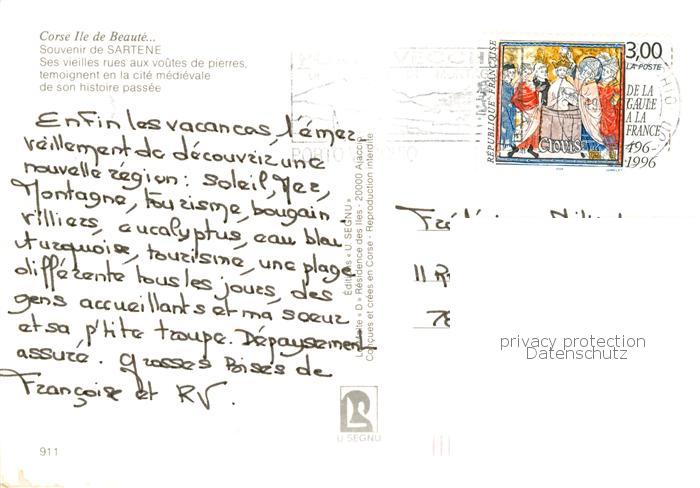 Corse Ile de Beauté...
Souvenir de SARTENE
Ses vieilles rues aux voûtes de pierres,
temoignent en la cité médiévale
de son histoire passée
Enfin les vacances, l'émer
veillement de découvrir une
nouvelle région : soleil, Mer,
Montagne, tourisme, bougain
villiers, eucalyptus, eau bleu
turquoise, tourisme, une plage
différente tous les jours, des
gens accueillants et ma soeur
et sa p'tite troupe. Dépaysement
assuré. Grosses Bises de
Françoise et RV.
911
Editions « U SEGNU »
« D » Résidence des Iles - 20000 Ajaccio
Conçues et créées en Corse - Reproduction interdite
U SEGNU
RÉPUBLIQUE FRANÇAISE
3,00
LA POSTE
DE LA
GAULE
A LA
FRANCE
496-
1996
Clovis
VECCHIO
PORTO
11 R
privacy protection
Datenschutz